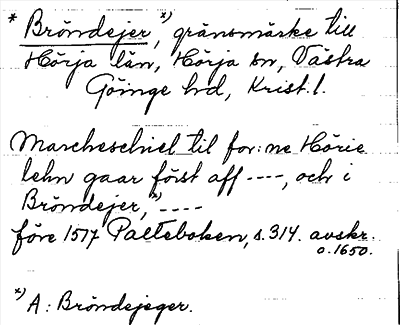 * Bröndejer, x) gränsmärke till
Hörja län, Hörja sn, Västra
Göinge hd, Krist. l.
Marcheschiel til for:ne Hörie
lehn gaar först aff ----, och i
Bröndejer, x) ----
före 1517 Palteboken, s. 314. avskr.
o. 1650.
x) A: Bröndejeger.